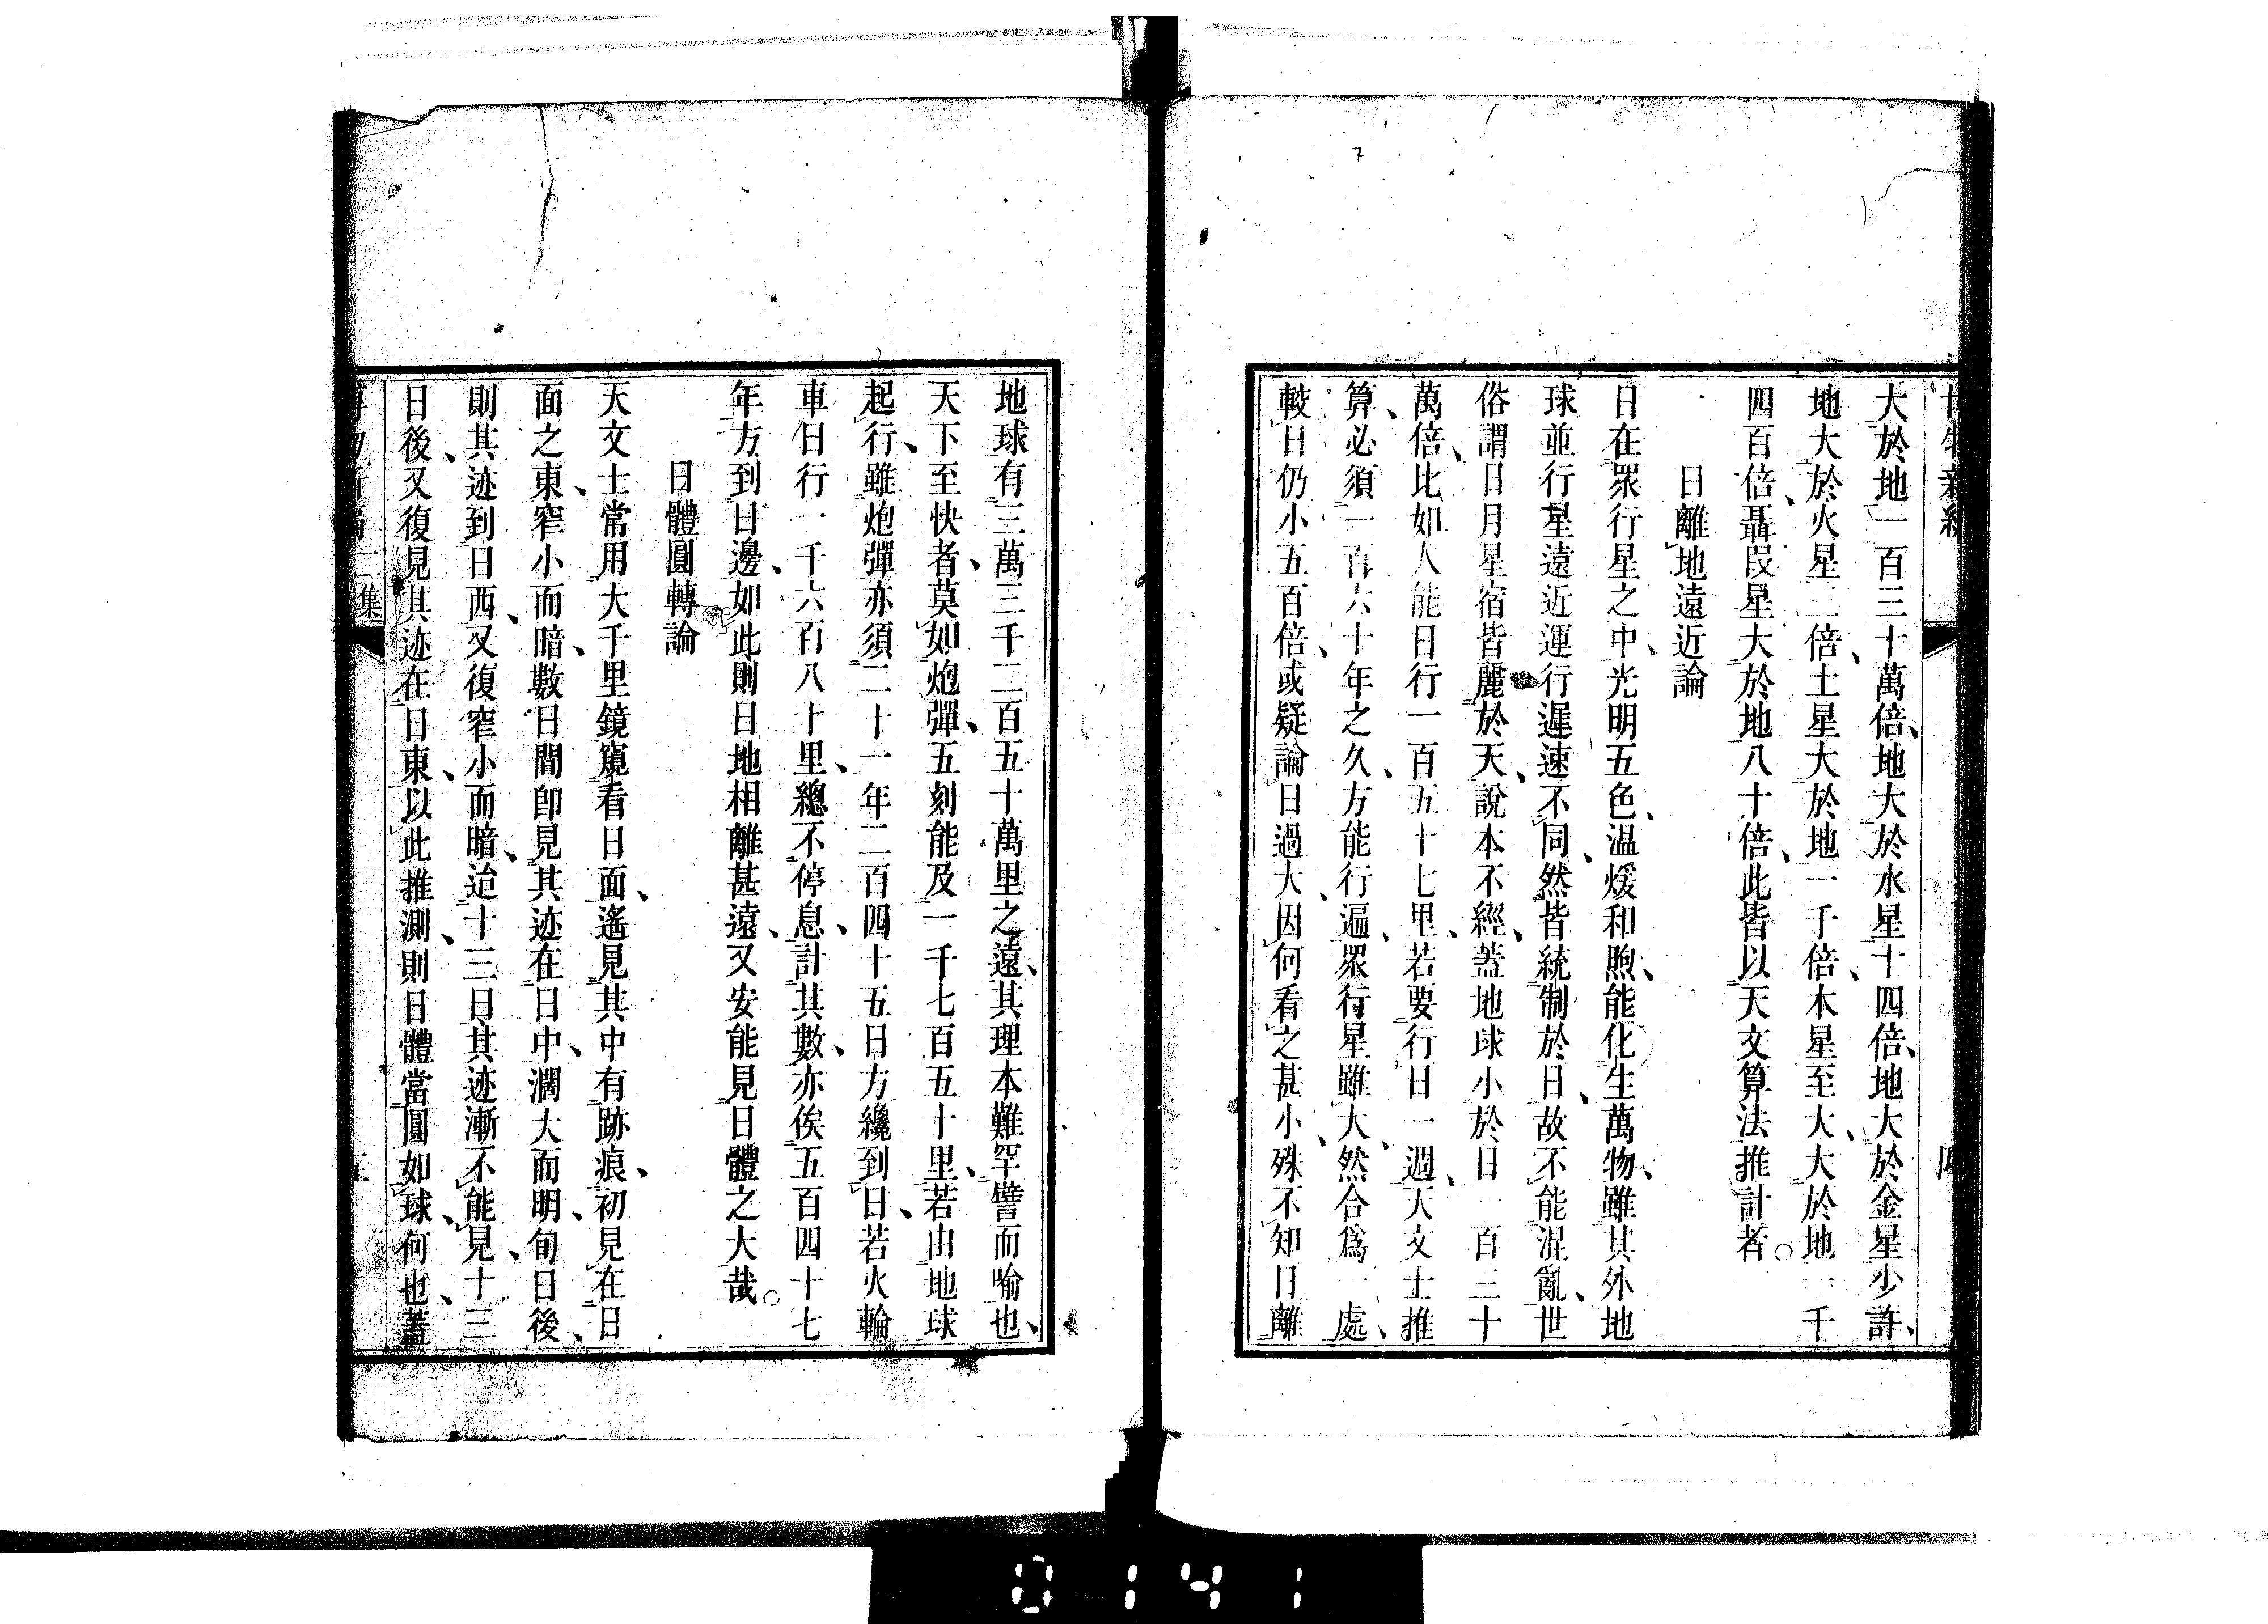 大於地一百三十萬倍、地大於水星十四倍、地大於金星少許、
地大於火星二倍、土星大於地一千倍、木星至大、大於地一千
四百倍、聶段星大於地八十倍、此皆以天文算法推計者。
日離地遠近論
日在眾行星之中、光明五色、温煖和煦、能化生萬物、雖其外地
球並行星遠近運行遲速不同、然皆統制於日、故不能混亂、世
俗謂日月星宿皆麗於天、說本不經、蓋地球小於日一百三十
萬倍、比如人能日行一百五十七里、若要行日一週、天文士推
算、必須一百六十年之久、方能行遍、眾行星雖大、然合爲一處、
較日仍小五百倍、或疑論日過大、因何看之甚小、殊不知日離
地球有三萬三千二百五十萬里之遠、其理本難罕譬而喻也、
天下至快者、莫如炮彈、五刻能及一千七百五十里、若由地球
起行、雖炮彈亦須二十一年二百四十五日方纔到日、若火輪
車日行一千六百八十里、總不停息、計其數、亦俟五百四十七
年方到日邊、如此則日地相離甚遠、又安能見日體之大哉。
日體圓轉論
天文士常用大千里鏡窺看日面、遙見其中有跡痕、初見在日
面之東、窄小而暗、數日間卽見其迹在日中、濶大而明、旬日後、
則其迹到日西、又復窄小而暗、迨十三日其迹漸不能見、十三
日後、又復見其迹在日東、以此推測、則日體當圓如球、何也、蓋
二集
0141